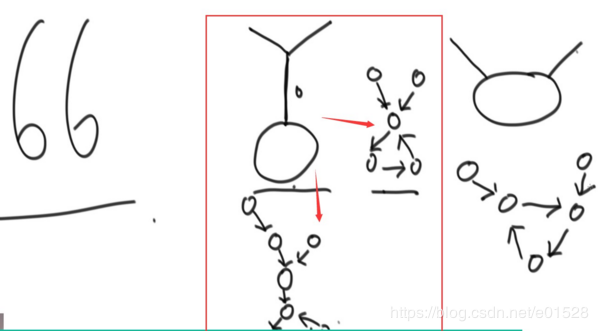 66
https://blog.csdn.net/e01528